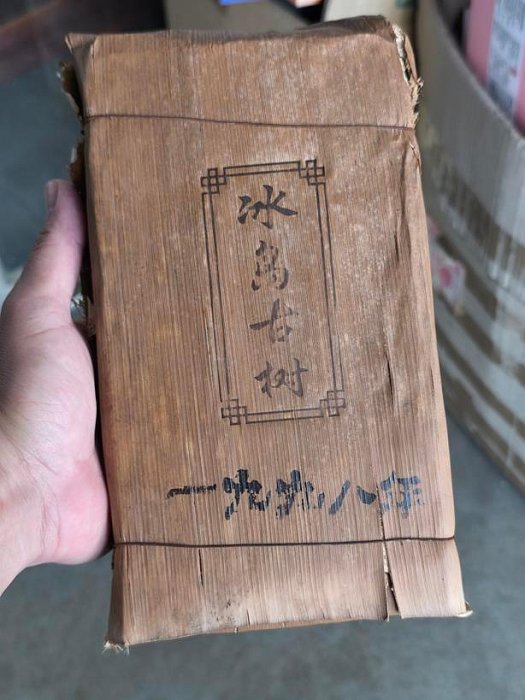 冰岛古树
一九九八年